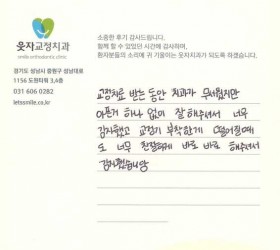 웃자교정치과
smile orthodontic clinic
경기도 성남시 중원구 성남대로
1156 도원타워 3,4층
031 606 0282
letssmile.co.kr
소중한 후기 감사드립니다.
함께 할 수 있었던 시간에 감사하며,
환자분들의 소리에 귀 기울이는 웃자치과가 되도록 하겠습니다.
교정치료 받는 동안 치과가 무서웠지만
아픈거 하나 없이 잘 해주셔서 너무
감사했고 교정기 부착한게 떨어질때
도 너무 친절하게 바로 바로 해주셔서
감사했습니당